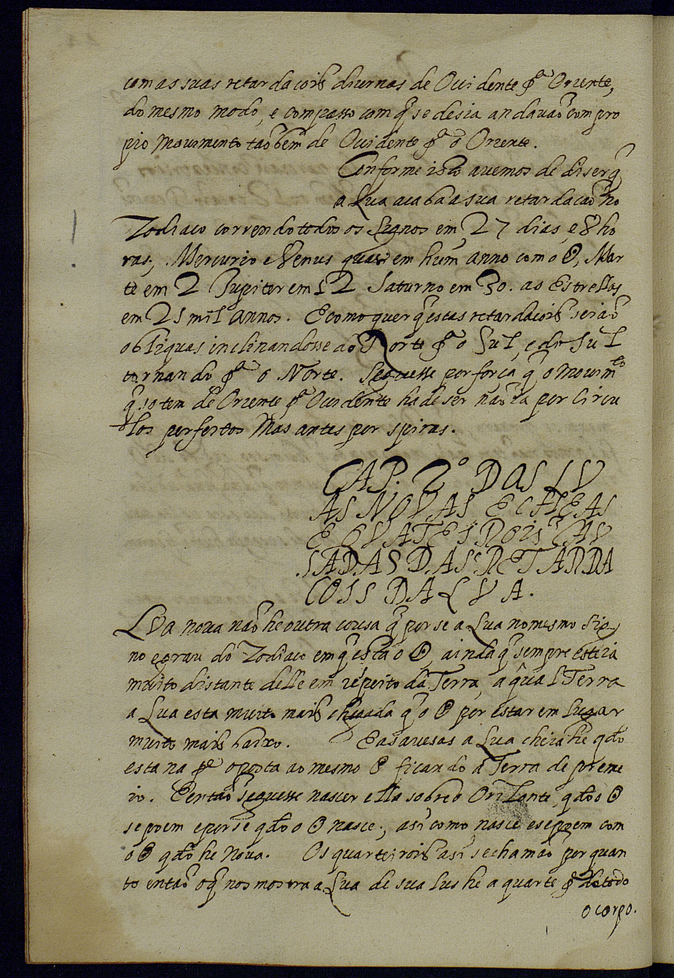 com as suas retardacois diurnas de Ocidente pª Oriente,
do mesmo modo, e compasso com q̃ se desia andauão com pro
pio mouimento taõbem de Ocidente pª o Oriente.
Conforme isto auemos de diser q̃
a Lua acaba a sua retardacaõ no
Zodiaco correndo todos os signos em, 27 dias, e 8 ho
ras, Mercurio e Venus quasi em hum anno como o ☉, Mar
te em 2 Jupiter em 12 Saturno em 30. as Estrellas
em 25 mil annos. E como quer q̃ estas retardacois seiaõ
obliquas inclinandosse ao Norte pª o Sul, e do Sul
tornando pª o Norte. Seguesse por forca q̃ o mouimto
q̃ so tem de Oriente pª Ocidente ha de ser naõ ia por Circu
los perfeitos Mas antes por spiras.
CAP. 2º DAS LU
AS NOUAS E CHEAS
E QUARTEIROIS CAU
SADAS DAS RETARDA
COIS DA LUA.
LUa noua naõ he outra cousa q̃ por se a Lua no mesmo Sig
no e grau do Zodiaco em q̃ está o ☉, ainda q̃ sempre esteia
muito distante delle em respeito da Terra, a qual Terra
a Lua esta muito mais chegada q̃ o ☉ por estar em Lugar
muito mais baixo. E as auesas a Lua cheia he qdo
esta na pte oposta ao mesmo ☉ ficando a Terra de preme
io. E entaõ seguesse nascer ella sobre o Orizonte, qdo o ☉
se poem e porse qdo o ☉ nasce, asi como nasce e se poem com
o ☉ qdo he Noua. Os quarteirois asi se chamaõ por quan
to entaõ o q̃ nos mostra a Lua de sua Lus he a quarte pte de todo
o corpo.